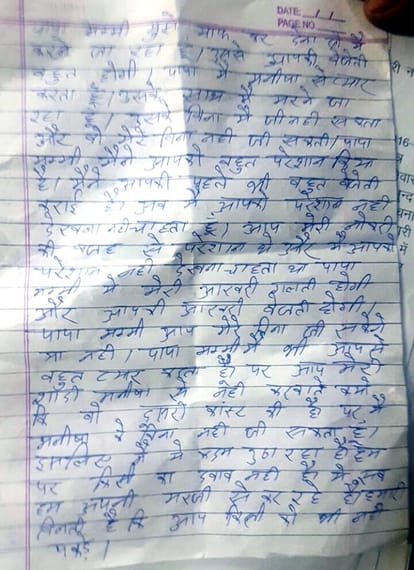 DATE 11
PAGE NO.
पापा मम्मी मुझे माफ कर देना जो मैं
करने जा रहा हूँ। इससे आपकी बेजती
बहुत होगी। पापा मैं मनीषा से प्यार
करता हूँ। उसके साथ मैं मरने जा
रहा हूँ। उसके बिना मैं जी नही सकता
और वो मेरे बिना नही जी सकती। पापा
मम्मी मैंने आपको बहुत परेशान किया
है। मैंने आपकी पहले भी बहुत बेजती
कराई है। अब मैं आपको परेशान नही
देखना नही चाहता हूँ। आप मेरी नोकरी
की वजह से परेशान थे और मैं आपको
परेशान नही देखना चाहता था पापा
मम्मी ये मेरी आखरी गलती होगी
और आपकी आखरी बेजती होगी।
पापा मम्मी आप मेरे बिना जी सकोगे
या नही। पापा मम्मी मैं भी आपसे
बहुत प्यार करता हूँ पर आप मेरी
शादी मनीषा से नही करवाते क्यो
कि वो दूसरी कास्ट की है पर मैं
मनीषा के बिना नही जी सकता हूँ।
इसलिए मैं ये कदम उठा रहा हूँ हम
पर किसी का दबाव नही है ये सब
हम अपनी मरजी से कर रहे है। हमारी
विनती है कि आप किसी को भी नही
पकड़े।
16-